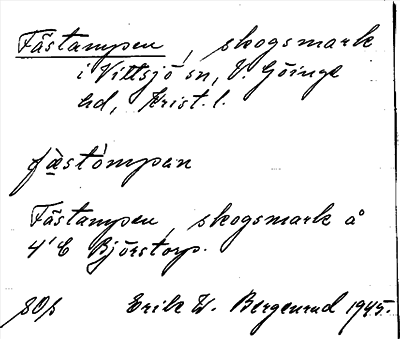 Fästampen, skogsmark
i Vittsjö sn, V. Göinge
hd, Krist. l.
fàstómpan
Fästampen, skogsmark å
4¹ C Björstorp.
Erik W. Bergenrud 1945.